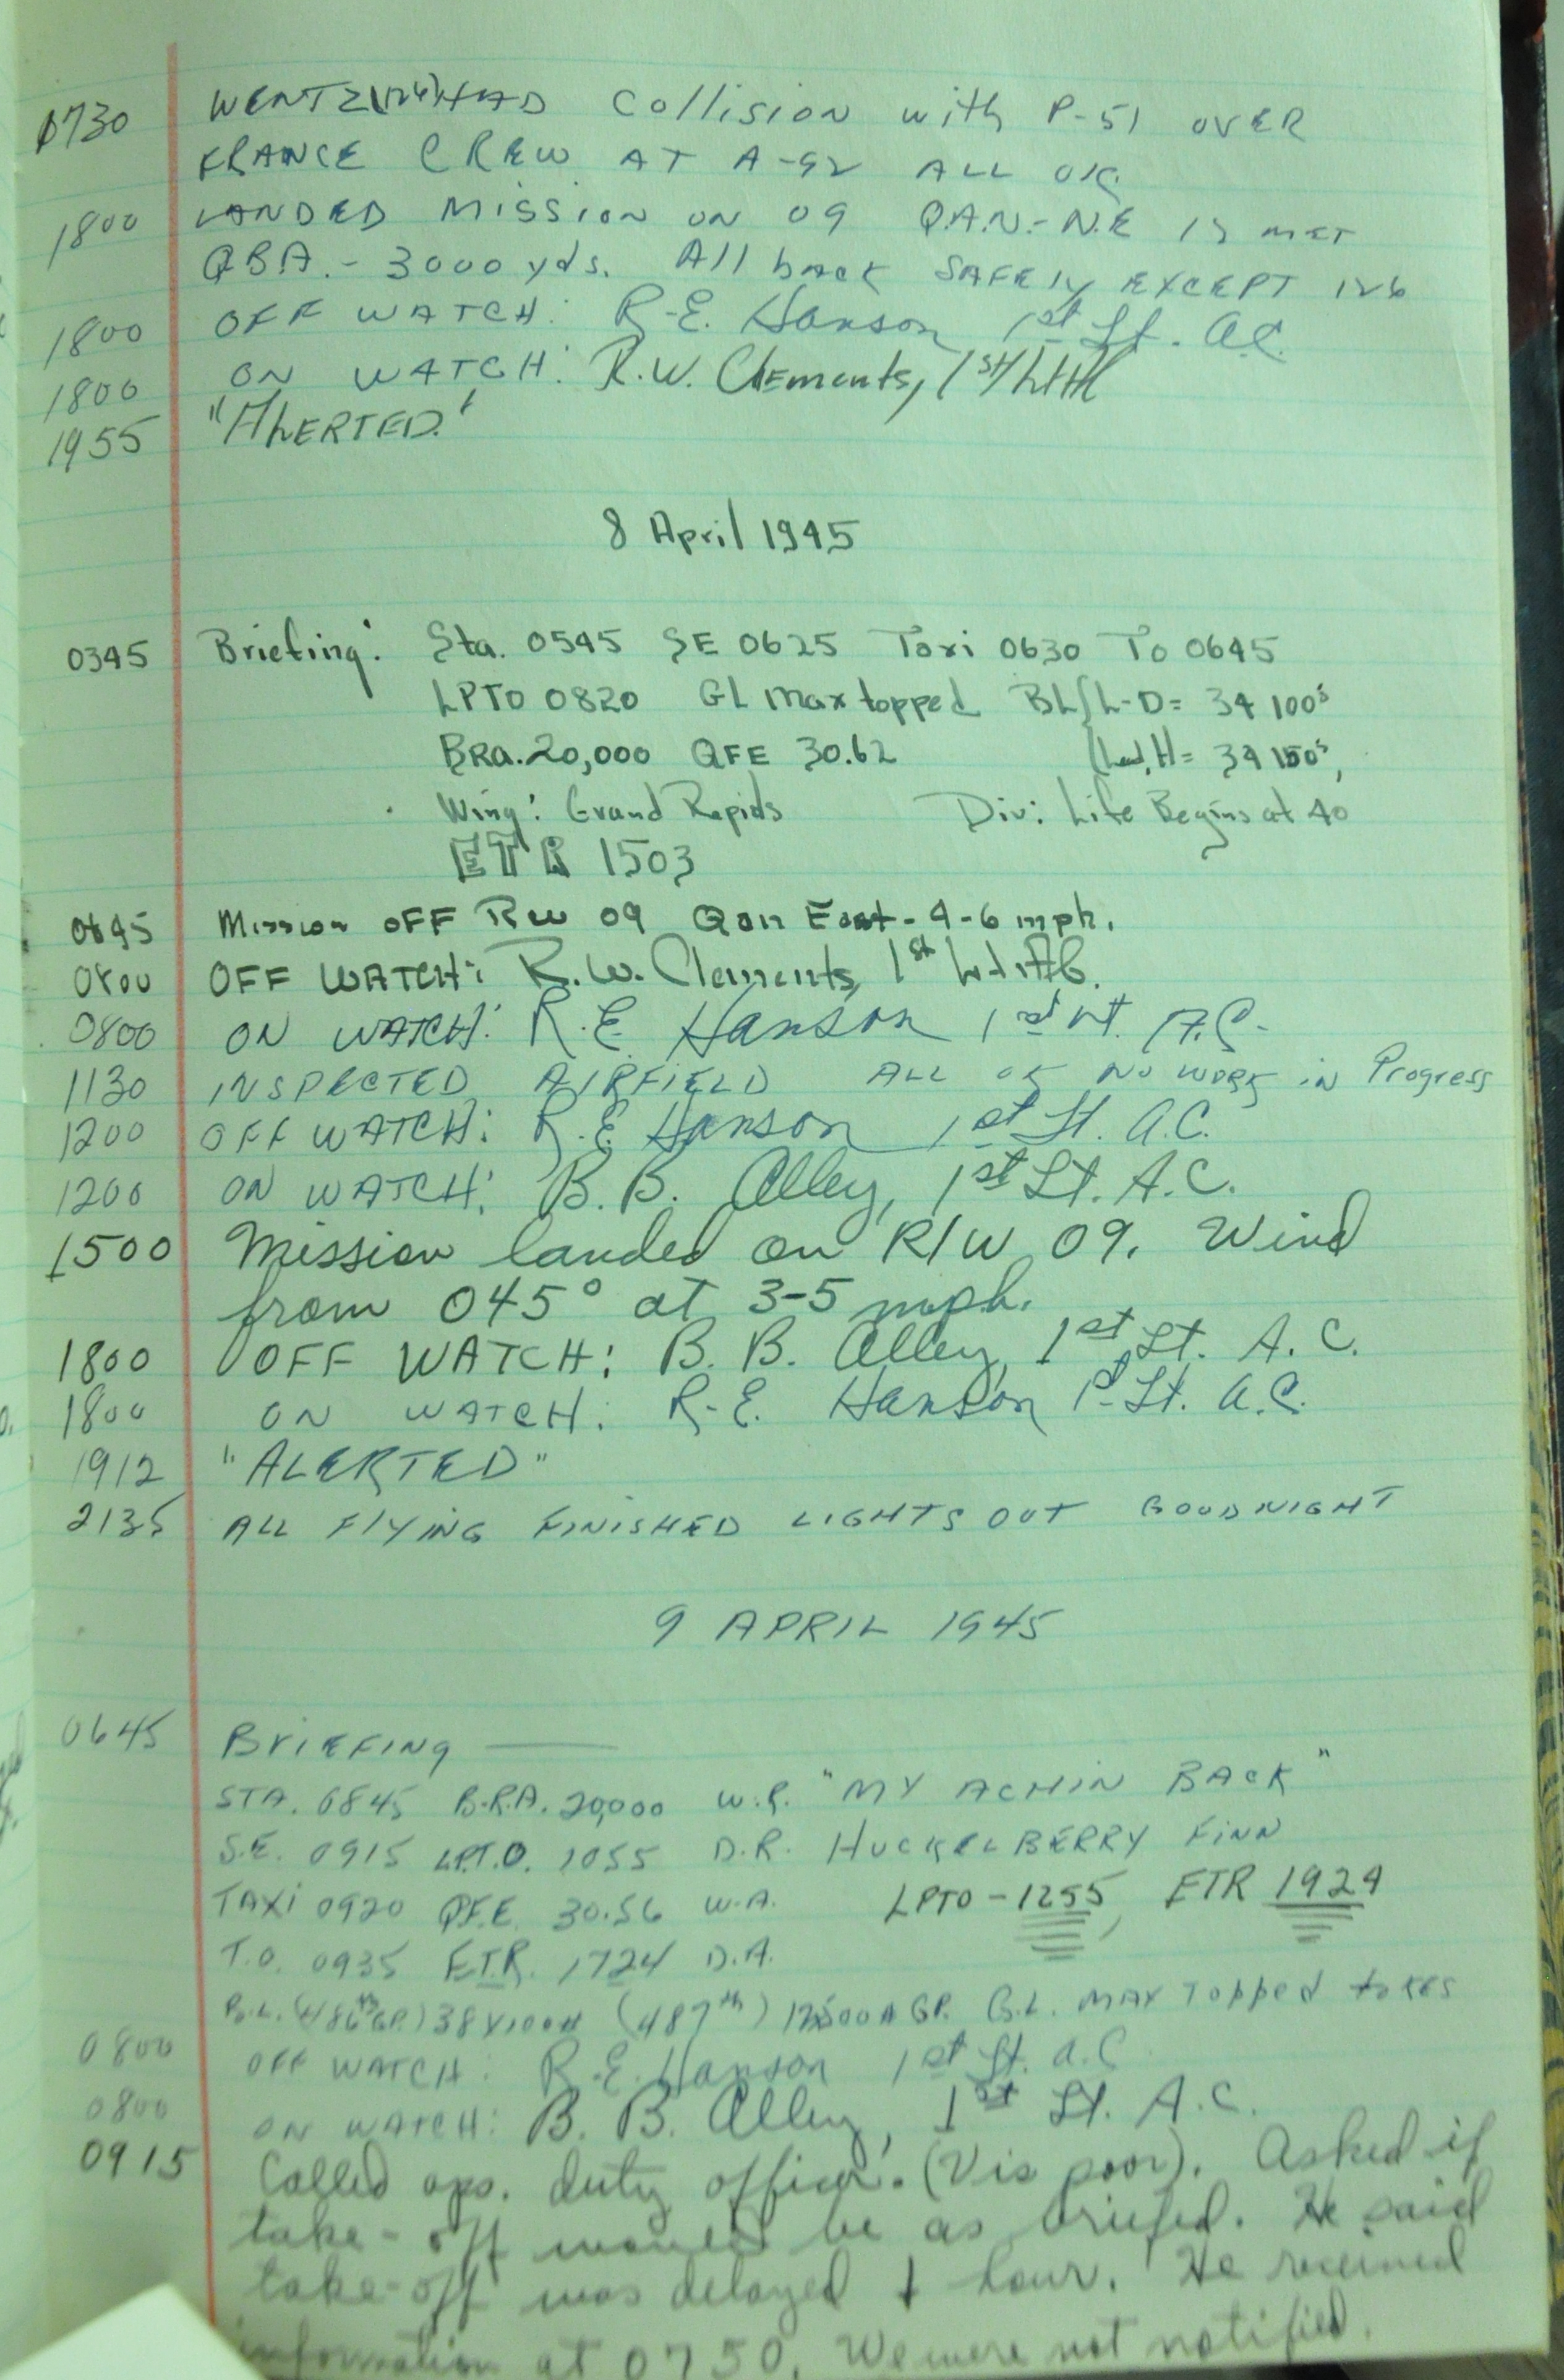 0730 WENTZ (126) HAD Collision with P-51 OVER
FRANCE CREW AT A-92 ALL OK
1800 LANDED MISSION ON 09 Q.A.N.-N.E 13
Q.B.A. - 3000 yds. All back SAFELY EXCEPT 126
1800 OFF WATCH: R-E. Hanson 1st Lt. A.C.
1800 ON WATCH: R.W. Clements, 1st Lt AC
1955 "ALERTED."
8 April 1945
0345 Briefing: Sta. 0545 SE 0625 Taxi 0630 To 0645
LPTO 0820 GL Max topped BL L-D= 34 100s
BRA. 20,000 QFE 30.62 H= 34 150s,
Wing: Grand Rapids Div: Life Begins at 40
ETR 1503
0645 Mission OFF RW 09 Qan East - 4-6 mph.
0800 OFF WATCH: R.W. Clements, 1st Lt AC.
0800 ON WATCH: R.E. Hanson 1st Lt. A.C.
1130 INSPECTED AIRFIELD ALL OK NO WORK IN Progress
1200 OFF WATCH: R.E. Hanson 1st Lt. A.C.
1200 ON WATCH: B.B. Alley, 1st Lt. A.C.
1500 Mission landed on R/W 09. Wind
from 045° at 3-5 mph.
1800 OFF WATCH: B. B. Alley, 1st Lt. A. C.
1800 ON WATCH: R-E. Hanson 1st Lt. A.C.
1912 "ALERTED"
2135 ALL FLYING FINISHED LIGHTS OUT GOODNIGHT
9 APRIL 1945
0645 BRIEFING —
STA. 0845 B.R.A. 20,000 W.R. "MY ACHIN BACK"
S.E. 0915 L.P.T.O. 1055 D.R. HUCKELBERRY FINN
TAXI 0920 Q.F.E. 30.56 W.A. LPTO - 1255, ETR 1924
T.O. 0935 E.T.R. 1724 D.A.
B.L. (486th GP.) 38 X 100# (487th) 500# GP. G.L. MAX Topped tokes
0800 OFF WATCH: R.E. Hanson 1st Lt. A.C
0800 ON WATCH: B. B. Alley, 1st Lt. A.C.
0915 Called ops. duty officer. (Vis poor). Asked if
take-off would be as briefed. He said
take-off was delayed 1 hour. He received
information at 0750. We were not notified.